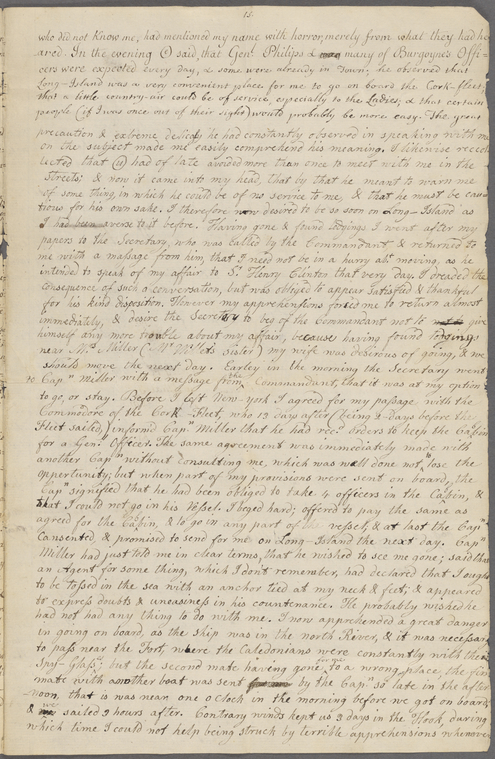 15.
who did not know me, had mentioned my name with horror, merely from what they had he
ared. In the evening ① said, that Genl. Philips & many of Burgoynes Offi-
cers were expected every day, & some were already in Town; he observed that
Long-Island was a very convenient place for me to go on board the Cork-fleet;
that a little country-air could be of service, especially to the Ladies; & that certain
people (if I was once out of their sight) would probably be more easy. The great
precaution & extreme delicacy he had constantly observed in speaking with me
on the subject made me easily comprehend his meaning. I likewise recol
lected that ⑪ had of late avoided more than once to meet with me in the
Streets & now it came into my head, that by that he meant to warn me
of some thing, in which he could be of no service to me, & that he must be cau
tious for his own sake. I therefore now desired to be so soon on Long-Island as
I had been averse to it before. Having gone & found lodgings I went after my
papers to the Secretary, who was called by the Commandant & returned to
me with a message from him, that I need not be in a hurry abt. moving, as he
intended to speak of my affair to Sr. Henry Clinton that very day. I dreaded the
consequence of such a conversation, but was obliged to appear satisfied & thankful
for his kind disposition. However my apprehensions forced me to return almost
immediately, & desire the Secretary to beg of the Commandant not to give
himself any more trouble about my affair, because having found lodgings
near Mrs. Miller ( sister) my wife was desirous of going, & we
should move the next day. Earley in the morning the Secretary went
to Capn. Miller with a message from the Commandant, that it was at my option
to go, or stay. Before I left New-york I agreed for my passage with the
Commodore of the Cork-Fleet, who 13 days after (being 2 days before the
Fleet sailed) informd Capn. Miller that he had recd. orders to keep the Cabbin
for a Genl. Officer. The same agreement was immediately made with
another Capn. without consulting me, which was well done not to lose the
oppertunity; but when part of my provisions were sent on board, the
Capn. signified that he had been obliged to take 4 officers in the Cabbin, &
that I could not go in his Vessel. I beged hard; offered to pay the same as
agreed for the Cabbin, & to go in any part of the vessel, & at last the Capn.
Consented, & promised to send for me on Long-Island the next day. Capn.
Miller had just told me in clear terms, that he wished to see me gone; said that
an Agent for some thing, which I don't remember, had declared that I ought
to be tossed in the sea with an anchor tied at my neck & feet; & appeared
to express doubts & uneasiness in his countenance. He probably wished he
had not had any thing to do with me. I now apprehended a great danger
in going on board, as the ship was in the north River, & it was necessary
to pass near the Fort, where the Caledonians were constantly with their
Spy-Glass; but the second mate having gone to a wrong place, the first
mate with another boat was sent by the Capn. so late in the after
noon, that is was near one o clock in the morning before we got on board
& we sailed 2 hours after. Contrary winds kept us 3 days in the Hook, during
which time I could not help being struck by terrible apprehensions whenever